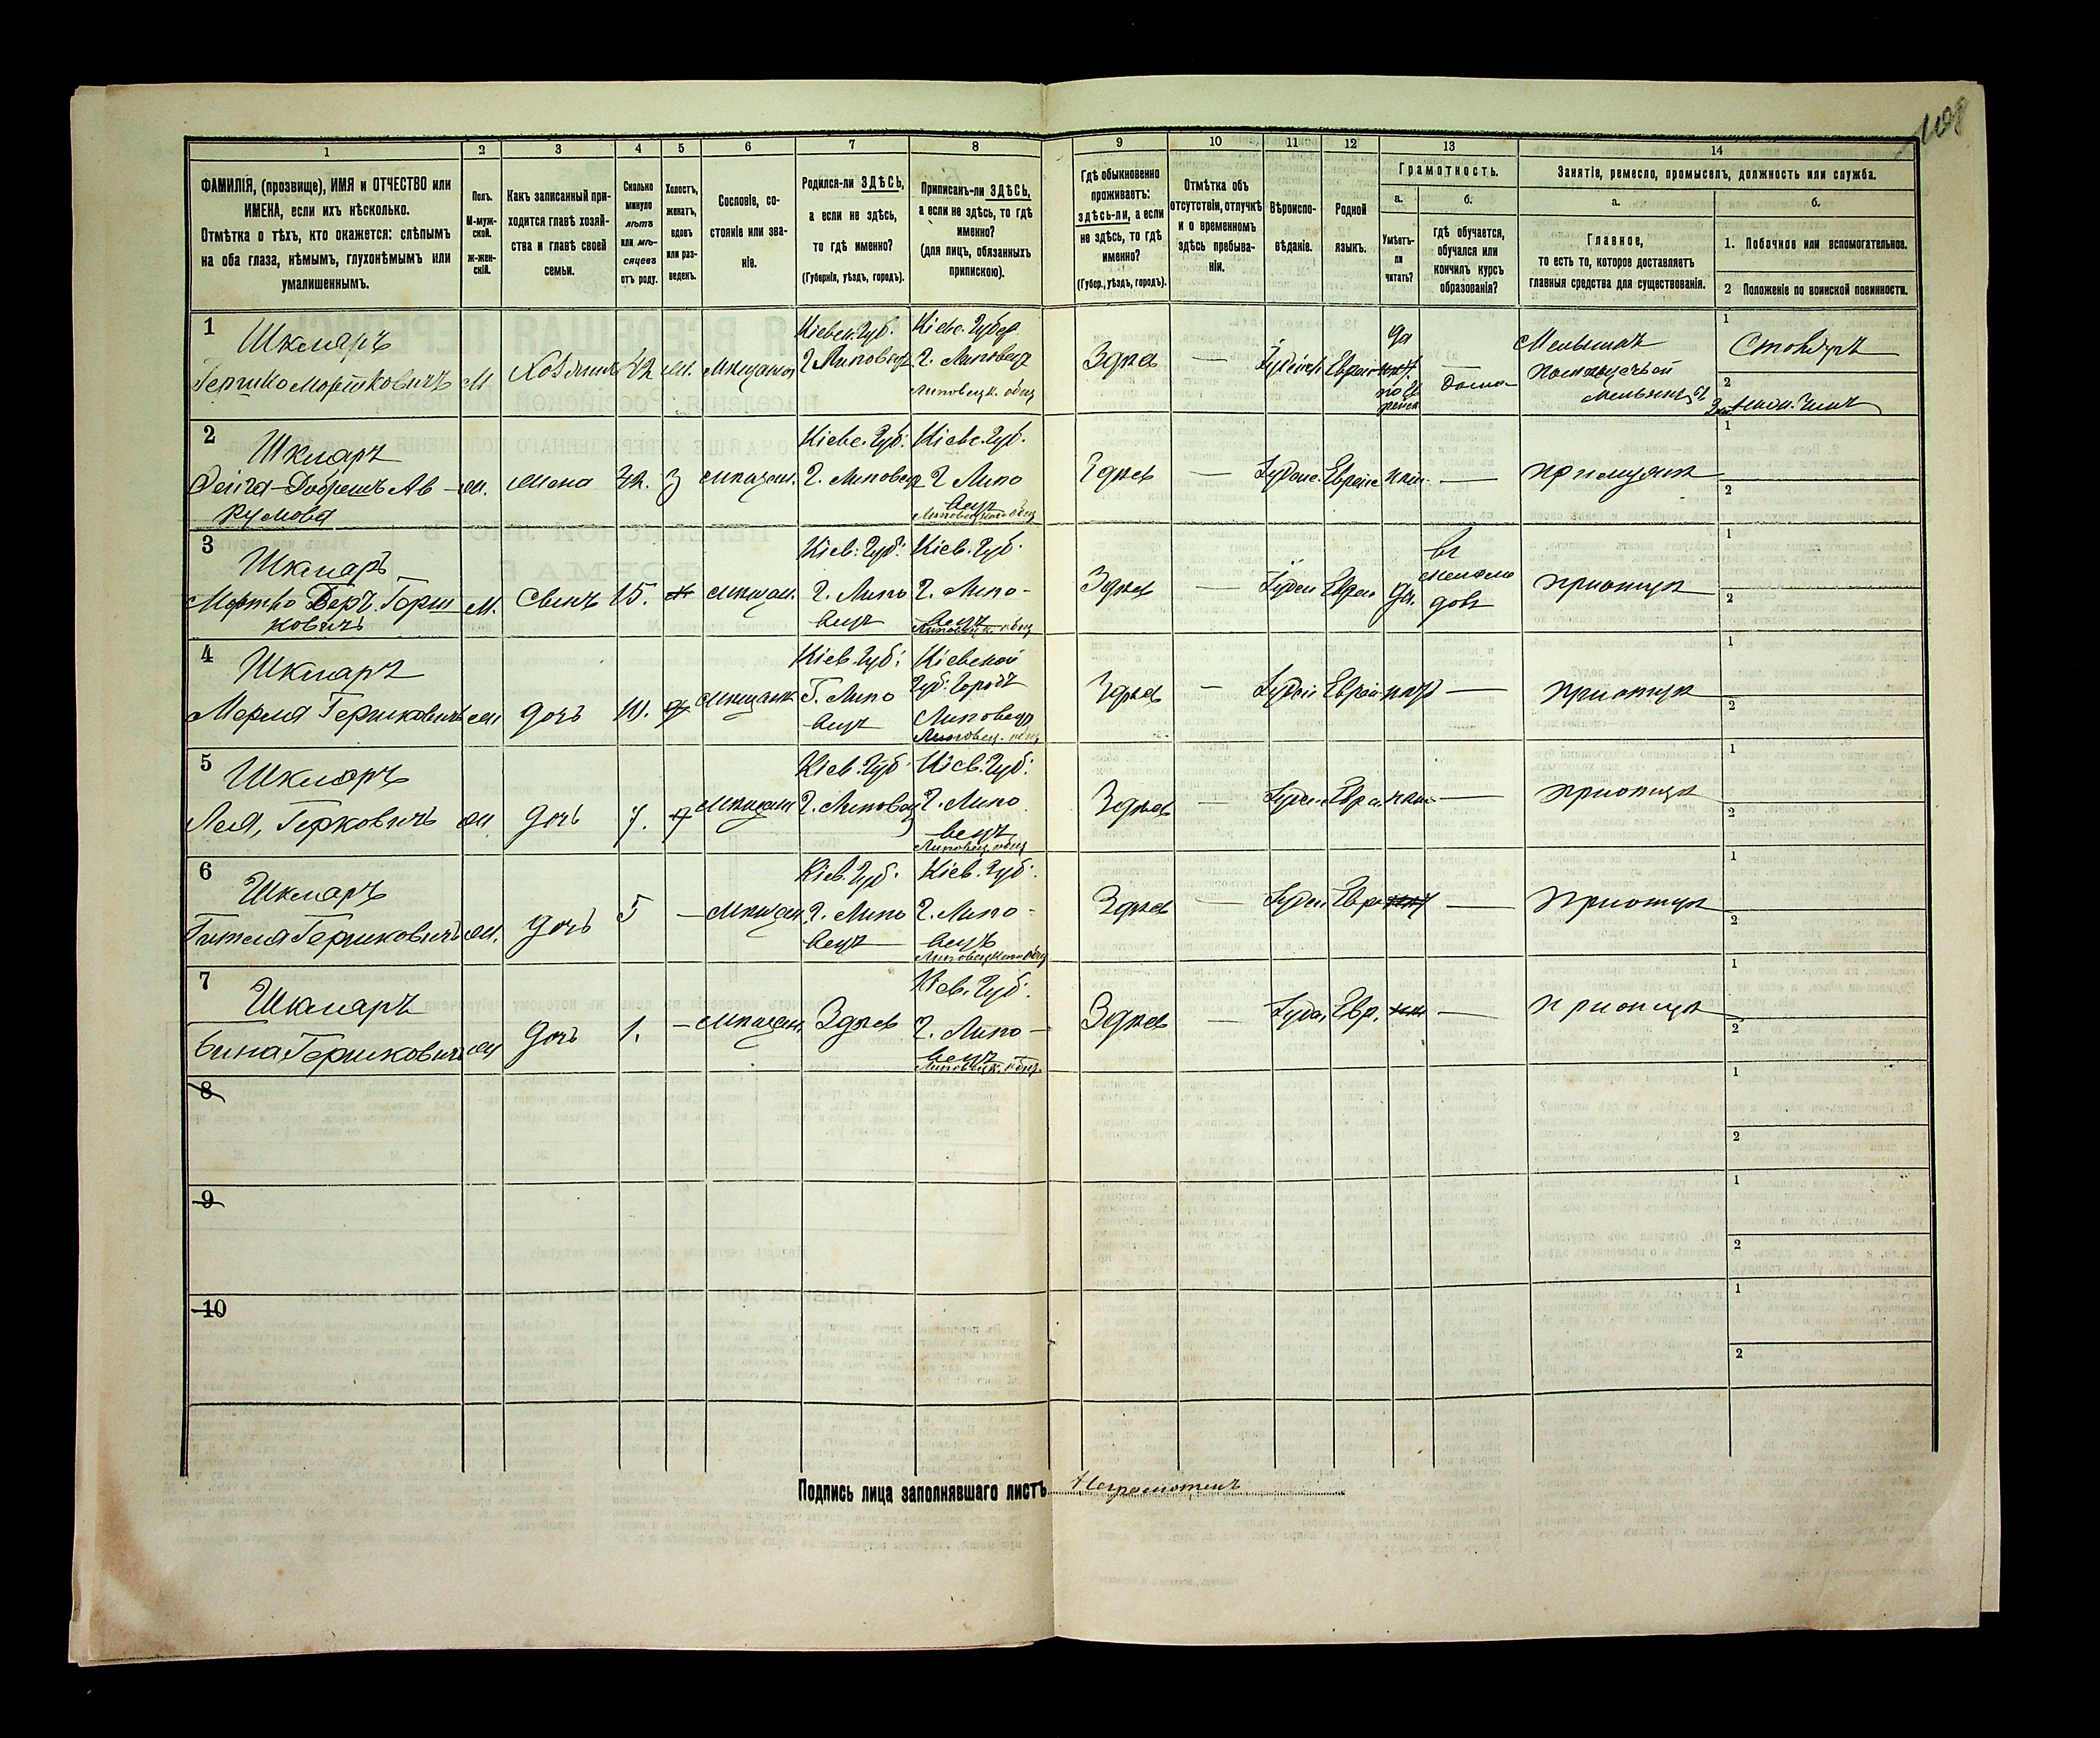 108
1 2 3 4 5 6 7 8 9 10 11 12 13 14
ФАМИЛІЯ, (прозвище), ИМЯ и ОТЧЕСТВО или
ИМЕНА, если ихъ нѣсколько.
Отмѣтка о тѣхъ, кто окажется: слѣпымъ
на оба глаза, нѣмымъ, глухонѣмымъ или
умалишеннымъ.
Полъ.
М-муж-
ской.
ж-жен-
скій.
Какъ записанный при-
ходится главѣ хозяй-
ства и главѣ своей
семьи.
Сколько
минуло
лѣтъ
или мѣ-
сяцевъ
отъ роду.
Холостъ,
женатъ,
вдовъ
или раз-
веденъ.
Сословіе, со-
стояніе или зва-
ніе.
Родился-ли ЗДѢСЬ,
а если не здѣсь,
то гдѣ именно?
(Губернія, уѣздъ, городъ).
Приписанъ-ли ЗДѢСЬ,
а если не здѣсь, то гдѣ
именно?
(для лицъ, обязанныхъ
припискою).
Гдѣ обыкновенно
проживаетъ:
здѣсь-ли, а если
не здѣсь, то гдѣ
именно?
(Губер., уѣздъ, городъ).
Отмѣтка объ
отсутствіи, отлучкѣ
и о временномъ
здѣсь пребыва-
ніи.
Вѣроиспо-
вѣданіе.
Родной
языкъ.
Грамотность.
а.
Умѣетъ-
ли
читать?
б.
гдѣ обучается,
обучался или
кончилъ курсъ
образованія?
Занятіе, ремесло, промыселъ, должность или служба.
а.
Главное,
то есть то, которое доставляетъ
главныя средства для существованія.
б.
1. Побочное или вспомогательное.
2 Положеніе по воинской повинности.
1
Шкляръ
Гершко Мортковичъ
М
Хозяинъ
42
М.
Мѣщанин
Кіевск. Губ.
Г. Липовецъ
Кіевс. Губер
Г. Липовецъ
Липовецк. общ
Здѣсь
—
Іудейск
Еврей
да
дома
Мельникъ
1
2
2
Шкляръ
М.
Жена
З
Мѣщан.
Кіевс. Губ.
Г. Липовец
Кіевс. Губ.
Г Липо
вецъ
Здѣсь
—
Іудейс.
Еврейс
—
при мужѣ
1
2
3
Шкляръ
Мортко Беръ Герш
ковичъ
М.
Сынъ
15.
Мѣщан.
Кіев. Губ.
Г. Липо
вецъ
Кіев. Губ.
Г. Липо-
вецъ
Липовецк. общ
Здѣсь
—
Іудей
Еврей
да.
при отцѣ
1
2
4
Шкляръ
Гершковичъ
дочь
10.
Мѣщанк
Кіев. Губ.
Г. Липо
вецъ
Кіевской
Губ. Городъ
Липовецъ
Липовец. общ
Здѣсь
—
Іудей
Еврей
—
при отцѣ
1
2
5
Шкляръ
Лея, Герковичъ
дочь
7.
Мѣщан
Кіев. Губ
Г. Липовец
Кіев. Губ.
Г. Липо
вецъ
Липовец. общ
Здѣсь
—
Іудей
Евре.
—
при отцѣ
1
2
6
Шкляръ
Гителя Гершковичъ
дочь
5
—
Мѣщан
Кіев. Губ.
Г. Липо
вецъ
Кіев. Губ.
Г. Липо-
вецъ
Здѣсь
—
Іудей
Евре
—
при отцѣ
1
2
7
Шкляръ
Гершкович
дочь
1.
—
Мѣщан
Здѣсь
Кіев. Губ.
Г. Липо-
вецъ
Липовецк. общ.
Здѣсь
—
Іуде,
Евр.
—
при отцѣ
1
2
8
1
2
9
1
2
10
1
2
Подпись лица заполнявшаго листъ Неграмотенъ